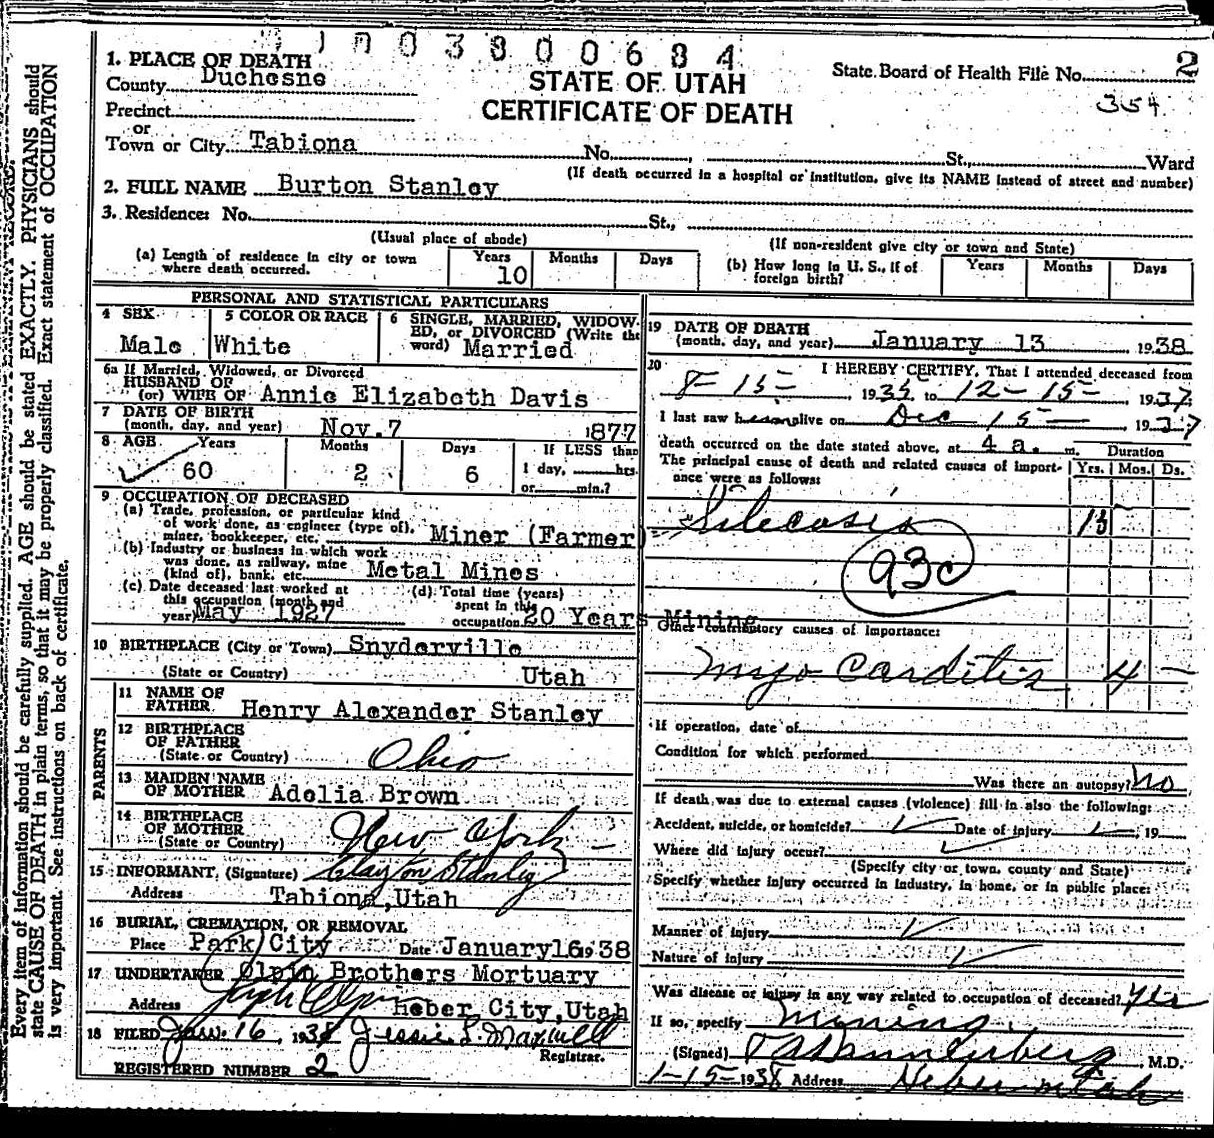 1003800684
2
1. PLACE OF DEATH
County Duchesne
STATE OF UTAH
CERTIFICATE OF DEATH
State Board of Health File No.
354
Precinct
or
Town or City Tabiona No. , St., Ward
(If death occurred in a hospital or institution, give its NAME instead of street and number)
2. FULL NAME Burton Stanley
3. Residence: No. St.,
(Usual place of abode) (If non-resident give city or town and State)
(a) Length of residence in city or town where death occurred. Years 10 Months Days
(b) How long in U. S., if of foreign birth? Years Months Days
PERSONAL AND STATISTICAL PARTICULARS
4 SEX Male
5 COLOR OR RACE White
6 SINGLE, MARRIED, WIDOWED, or DIVORCED (Write the word) Married
6a If Married, Widowed, or Divorced
HUSBAND OF
(or) WIFE OF Annie Elizabeth Davis
7 DATE OF BIRTH
(month, day, and year) Nov. 7 1877
8 AGE Years 60 Months 2 Days 6 If LESS than 1 day, hrs. or min.?
9 OCCUPATION OF DECEASED
(a) Trade, profession, or particular kind of work done, as engineer (type of), miner, bookkeeper, etc. Miner (Farmer)
(b) Industry or business in which work was done, as railway, mine (kind of), bank, etc. Metal Mines
(c) Date deceased last worked at this occupation (month and year) May 1927
(d) Total time (years) spent in this occupation 20 Years Mining
10 BIRTHPLACE (City or Town) Snyderville
(State or Country) Utah
PARENTS
11 NAME OF FATHER Henry Alexander Stanley
12 BIRTHPLACE OF FATHER
(State or Country) Ohio
13 MAIDEN NAME OF MOTHER Adelia Brown
14 BIRTHPLACE OF MOTHER
(State or Country) New York
15 INFORMANT, (Signature) Clayton Stanley
Address Tabiona, Utah
16 BURIAL, CREMATION, OR REMOVAL
Place Park City Date January 16 1938
17 UNDERTAKER Olpin Brothers Mortuary
Address Heber City, Utah
18 FILED Jan. 16, 1938 Jessie L. Maxwell
Registrar.
REGISTERED NUMBER 2
19 DATE OF DEATH
(month, day, and year) January 13, 1938
20 I HEREBY CERTIFY, That I attended deceased from
8-15- 1935, to 12-15- 1937.
I last saw him alive on Dec 15- 1937
death occurred on the date stated above, at 4 a. m.
The principal cause of death and related causes of importance were as follows:
Duration
Yrs. Mos. Ds.
Silecosis 13
93c
Other contributory causes of importance:
Myo Carditis 4
If operation, date of
Condition for which performed
Was there an autopsy? no
If death was due to external causes (violence) fill in also the following:
Accident, suicide, or homicide? Date of injury , 19
Where did injury occur?
(Specify city or town, county and State)
Specify whether injury occurred in industry, in home, or in public place:
Manner of injury
Nature of injury
Was disease or injury in any way related to occupation of deceased? yes
If so, specify Mining.
(Signed) , M.D.
1-15-1938 Address Heber Utah
Every item of information should be carefully supplied. AGE should be stated EXACTLY. PHYSICIANS should
state CAUSE OF DEATH in plain terms, so that it may be properly classified. Exact statement of OCCUPATION
is very important. See instructions on back of certificate.